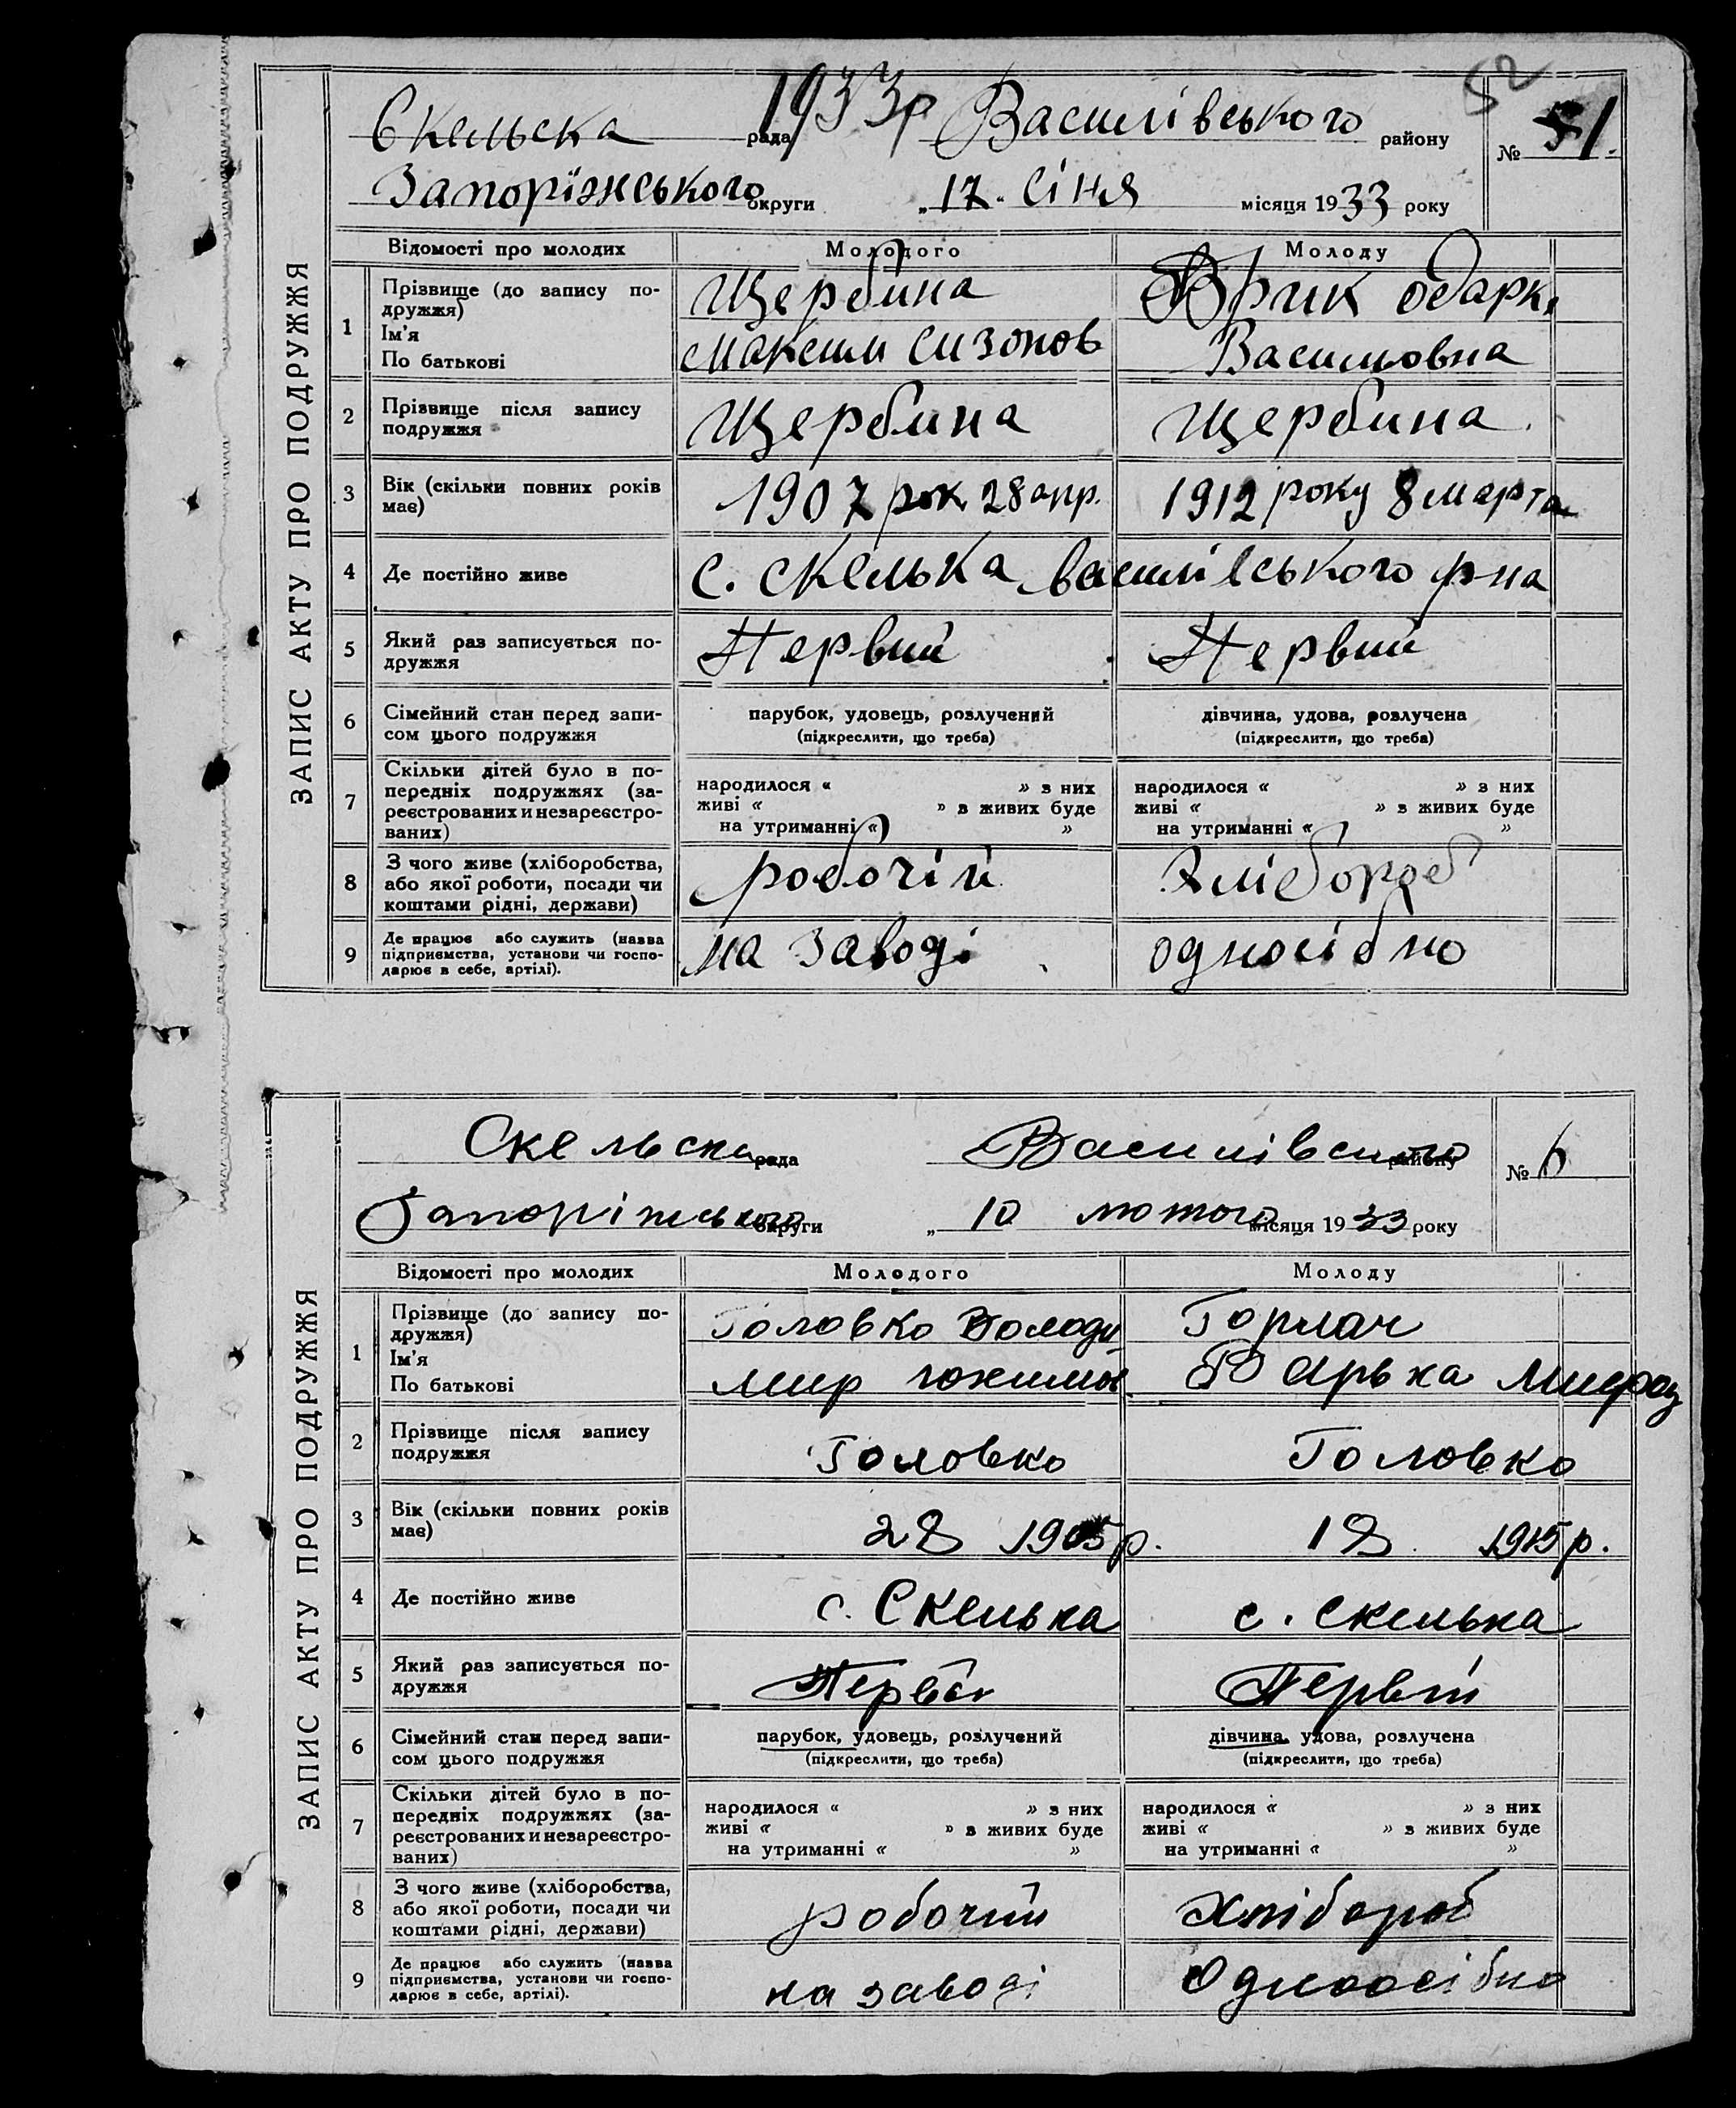 52
1933р
Скельска рада Василівського району № 51.
Запоріжського округи „17. січня місяця 1933 року
ЗАПИС АКТУ ПРО ПОДРУЖЖЯ
Відомості про молодих Молодого Молоду
1 Прізвище (до запису по-
дружжя)
Ім'я
По батькові
Щербина
Максим Сизонов
Одарка
Василовна
2 Прізвище після запису
подружжя
Щербина Щербина.
3 Вік (скільки повних років
має)
1907 рок 28 апр. 1912 року 8 марта
4 Де постійно живе с. Скелька Василівського р-на
5 Який раз записується по-
дружжя
Первий Первий
6 Сімейний стан перед запи-
сом цього подружжя
парубок, удовець, розлучений
(підкреслити, що треба)
дівчина, удова, розлучена
(підкреслити, що треба)
7 Скільки дітей було в по-
передніх подружжях (за-
реєстрованих и незареєстро-
ваних)
народилося « » з них
живі « » з живих буде
на утриманні « »
народилося « » з них
живі « » з живих буде
на утриманні « »
8 З чого живе (хліборобства,
або якої роботи, посади чи
коштами рідні, держави)
робочій Хлібороб
9 Де працює або служить (назва
підприємства, установи чи госпо-
дарює в себе, артілі).
на заводі односібно
Скельска рада Василівского району № 6
Запоріжського округи „ 10 лютого місяця 1933 року
ЗАПИС АКТУ ПРО ПОДРУЖЖЯ
Відомості про молодих Молодого Молоду
1 Прізвище (до запису по-
дружжя)
Ім'я
По батькові
Головко Володи
мир
Горлач
Варька
2 Прізвище після запису
подружжя
Головко Головко
3 Вік (скільки повних років
має)
28 1905р. 18 1915р.
4 Де постійно живе с. Скелька с. Скелька
5 Який раз записується по-
дружжя
Первий Первий
6 Сімейний стан перед запи-
сом цього подружжя
парубок, удовець, розлучений
(підкреслити, що треба)
дівчина, удова, розлучена
(підкреслити, що треба)
7 Скільки дітей було в по-
передніх подружжях (за-
реєстрованих и незареєстро-
ваних)
народилося « » з них
живі « » з живих буде
на утриманні « »
народилося « » з них
живі « » з живих буде
на утриманні « »
8 З чого живе (хліборобства,
або якої роботи, посади чи
коштами рідні, держави)
робочий Хлібороб
9 Де працює або служить (назва
підприємства, установи чи госпо-
дарює в себе, артілі).
на заводі Одноосібно